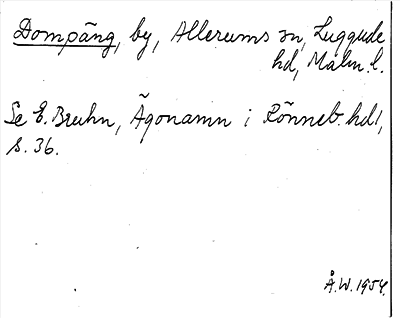 Dompäng, by, Allerums sn, Luggude
hd, Malm. l.
Se E. Bruhn, Ägonamn i Rönneb. hd 1,
s. 36.
Å.W. 1954.